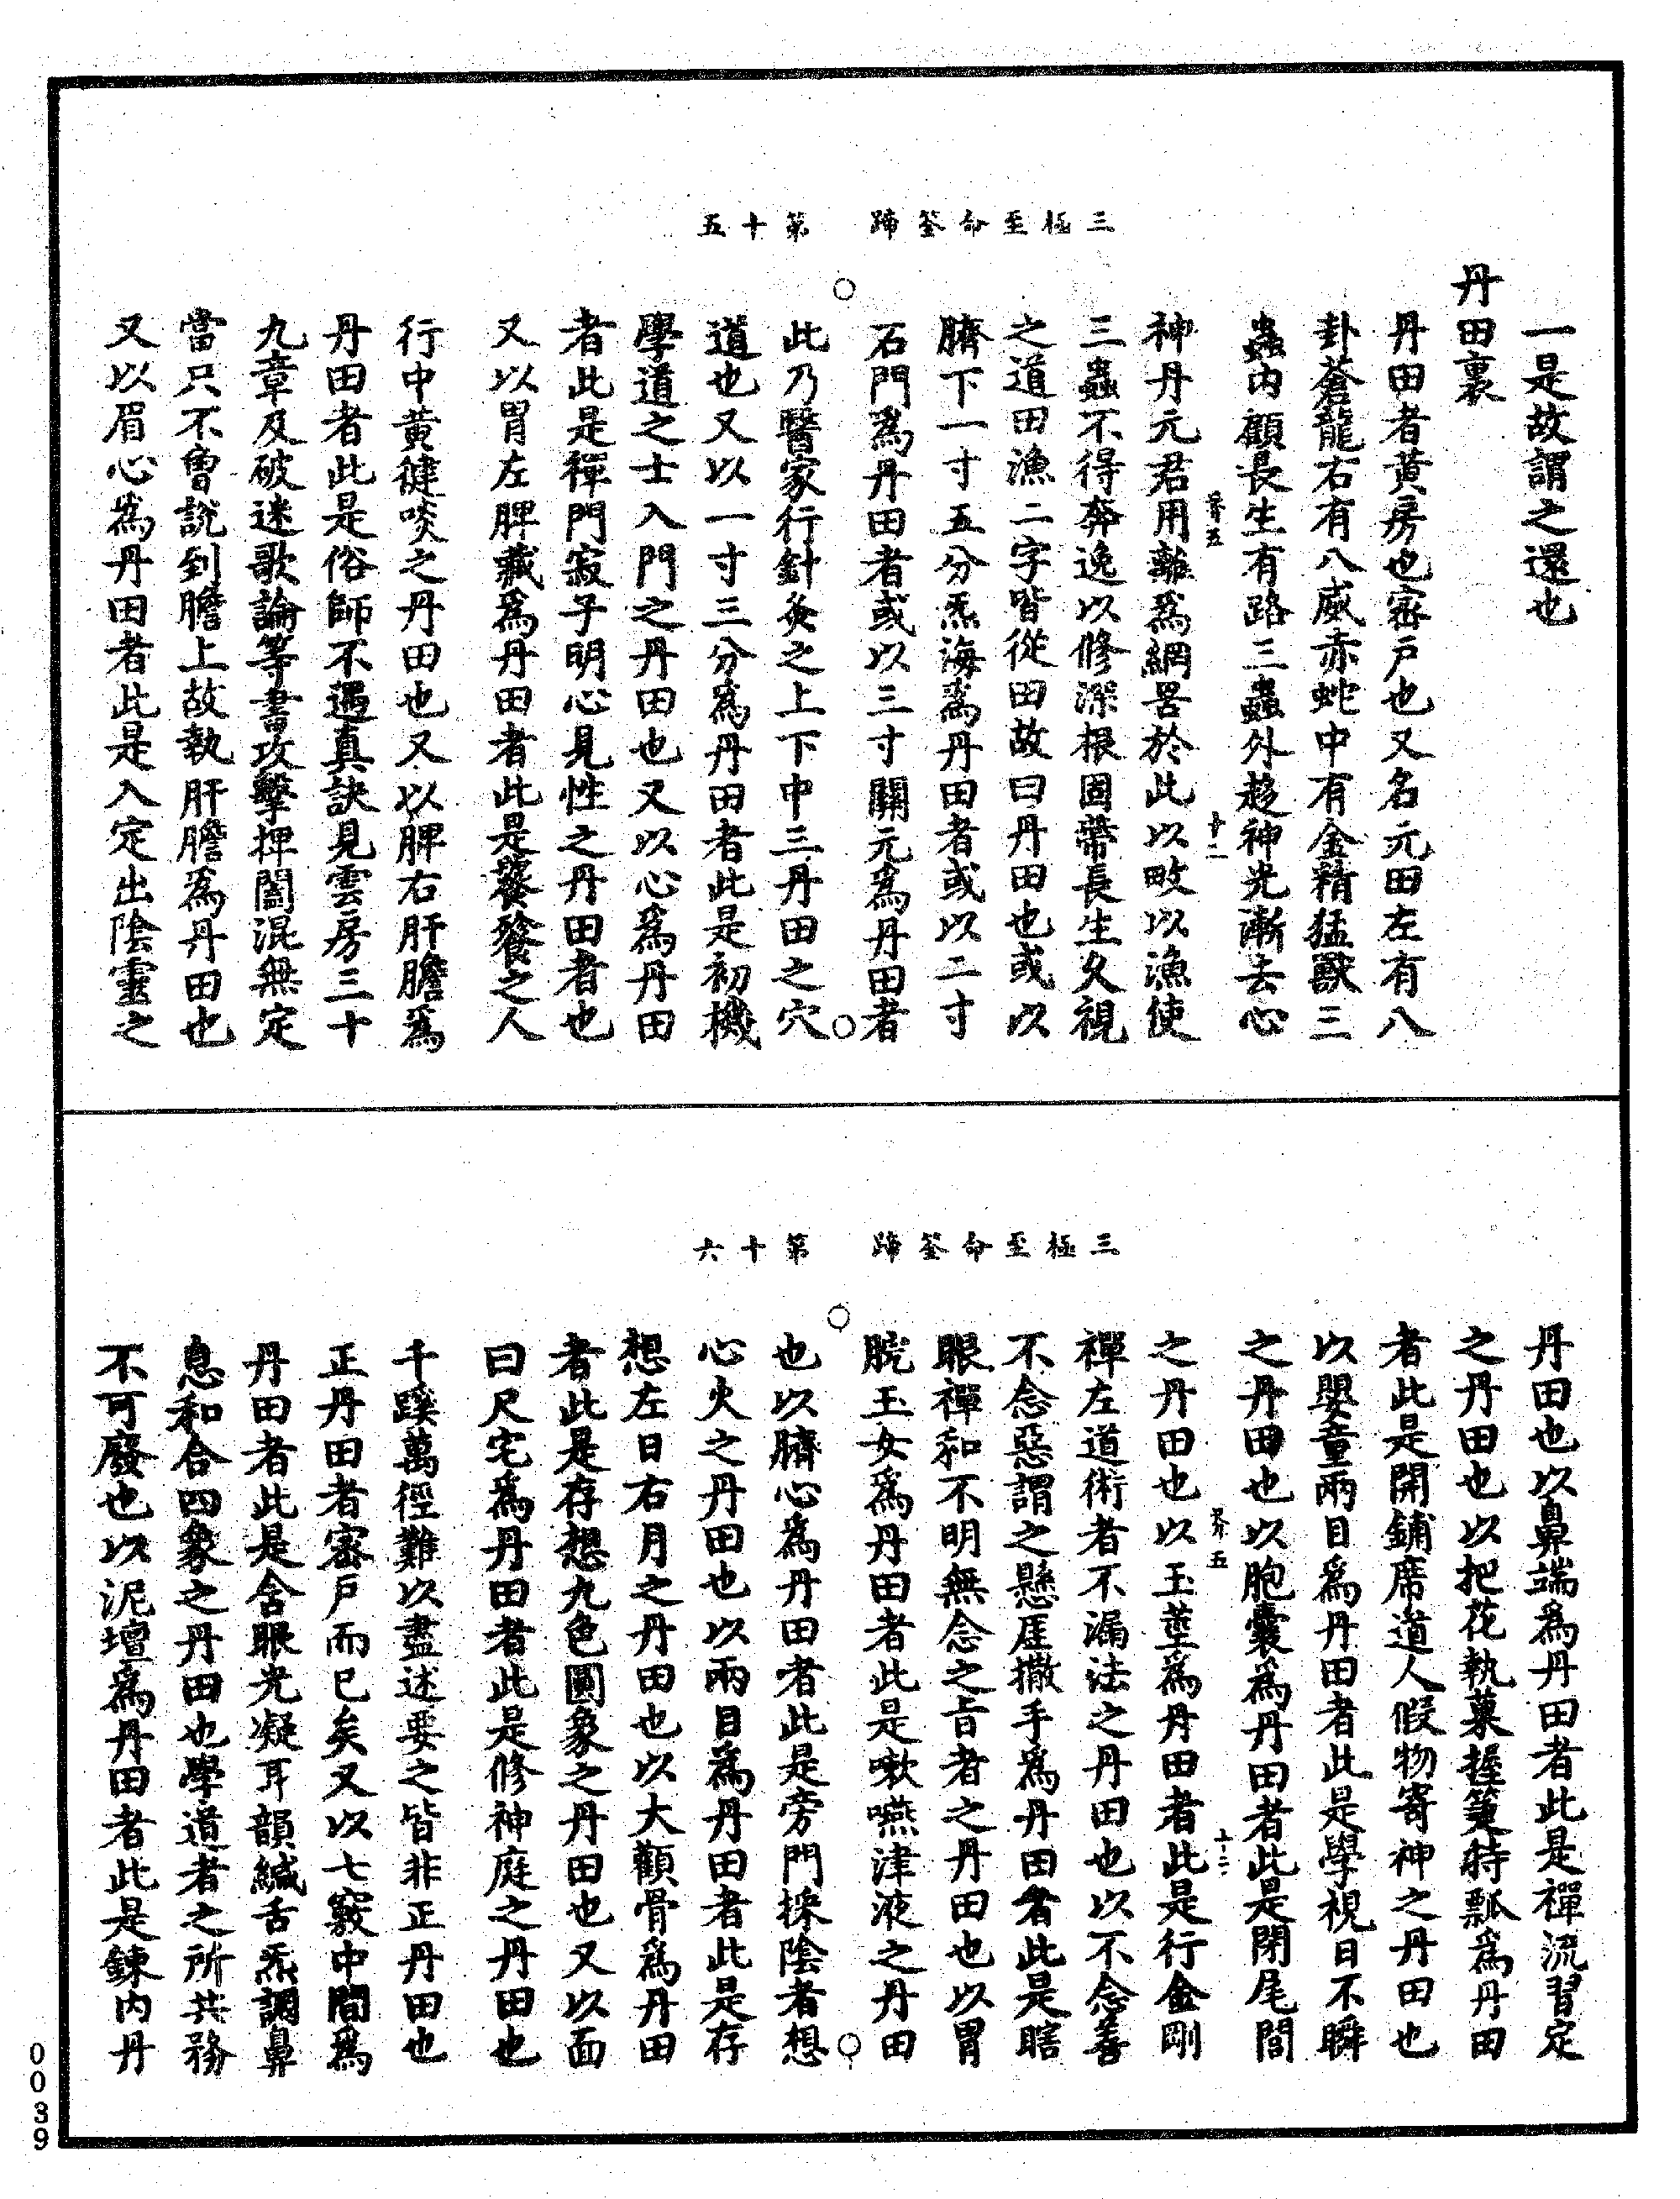 三極至命筌蹄　第十五
一是故謂之還也
丹田裏
丹田者黃房也密戶也又名元田左有八
卦蒼龍右有八威赤蛇中有金精猛獸三
蟲內顧長生有路三蟲外趍神光漸去心
神丹元君用離爲網罟於此以畋以漁使
三蟲不得奔逸以修深根固蔕長生久視
之道田漁二字皆從田故曰丹田也或以
臍下一寸五分炁海爲丹田者或以二寸
石門爲丹田者或以三寸關元爲丹田者
此乃醫家行針灸之上下中三丹田之穴
道也又以一寸三分爲丹田者此是初機
學道之士入門之丹田也又以心爲丹田
者此是禪門寂子明心見性之丹田者也
又以胃左脾藏爲丹田者此是饕餮之人
行中黃健啖之丹田也又以脾右肝膽爲
丹田者此是俗師不遇真訣見雲房三十
九章及破迷歌論等書攻擊捭闔混無定
當只不曾說到膽上故執肝膽爲丹田也
又以眉心爲丹田者此是入定出陰靈之
三極至命筌蹄　第十六
丹田也以鼻端爲丹田者此是禪流習定
之丹田也以把花執菓握箑持瓢爲丹田
者此是開鋪席道人假物寄神之丹田也
以嬰童兩目爲丹田者此是學視日不瞬
之丹田也以胞囊爲丹田者此是閉尾閭
之丹田也以玉莖爲丹田者此是行金剛
禪左道術者不漏法之丹田也以不念善
不念惡謂之懸厓撒手爲丹田者此是瞎
眼禪和不明無念之旨者之丹田也以胃
脘玉女爲丹田者此是嗽嚥津液之丹田
也以臍心爲丹田者此是旁門採陰者想
心火之丹田也以兩目爲丹田者此是存
想左日右月之丹田也以大顴骨爲丹田
者此是存想九色圓象之丹田也又以面
曰尺宅爲丹田者此是修神庭之丹田也
千蹊萬徑難以盡述要之皆非正丹田也
正丹田者密戶而已矣又以七竅中間爲
丹田者此是含眼光凝耳韻緘舌炁調鼻
息和合四象之丹田也學道者之所共務
不可廢也以泥壇爲丹田者此是鍊內丹
0039